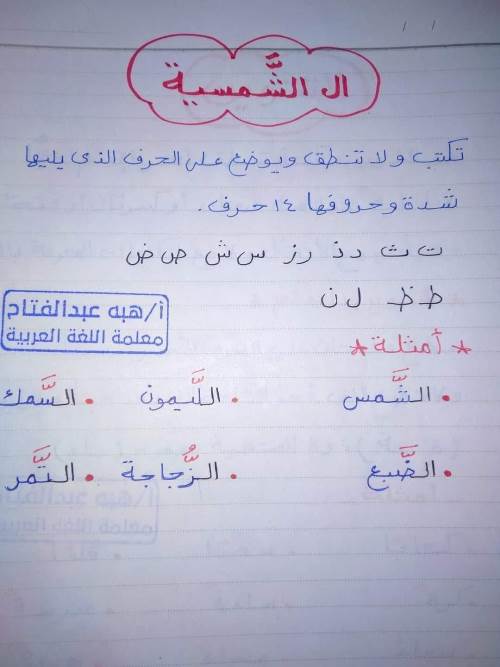 ال الشَّمسية
تكتب ولا تنطق ويوضع على الحرف الذى يليها
شدة وحروفها ١٤ حرف.
ت ث د ذ ر ز س ش ص ض
ط ظ ل ن
أ/هبه عبدالفتاح
معلمة اللغة العربية
* أمثلة *
• الشَّمس • اللَّيمون • السَّمك
• الضَّبع • الزُّجاجة • التَّمر